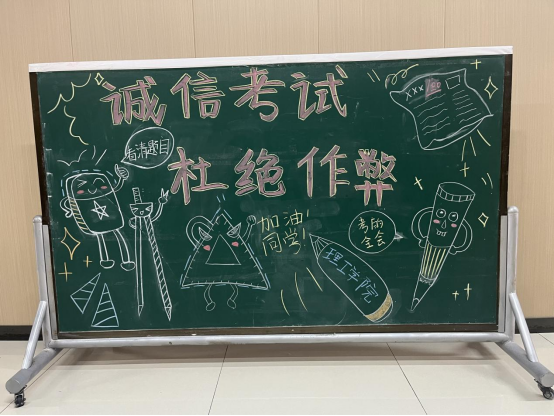 诚信考试
杜绝作弊
看清题目
加油!
同学!
考的
全会
理工学院
XXX 100